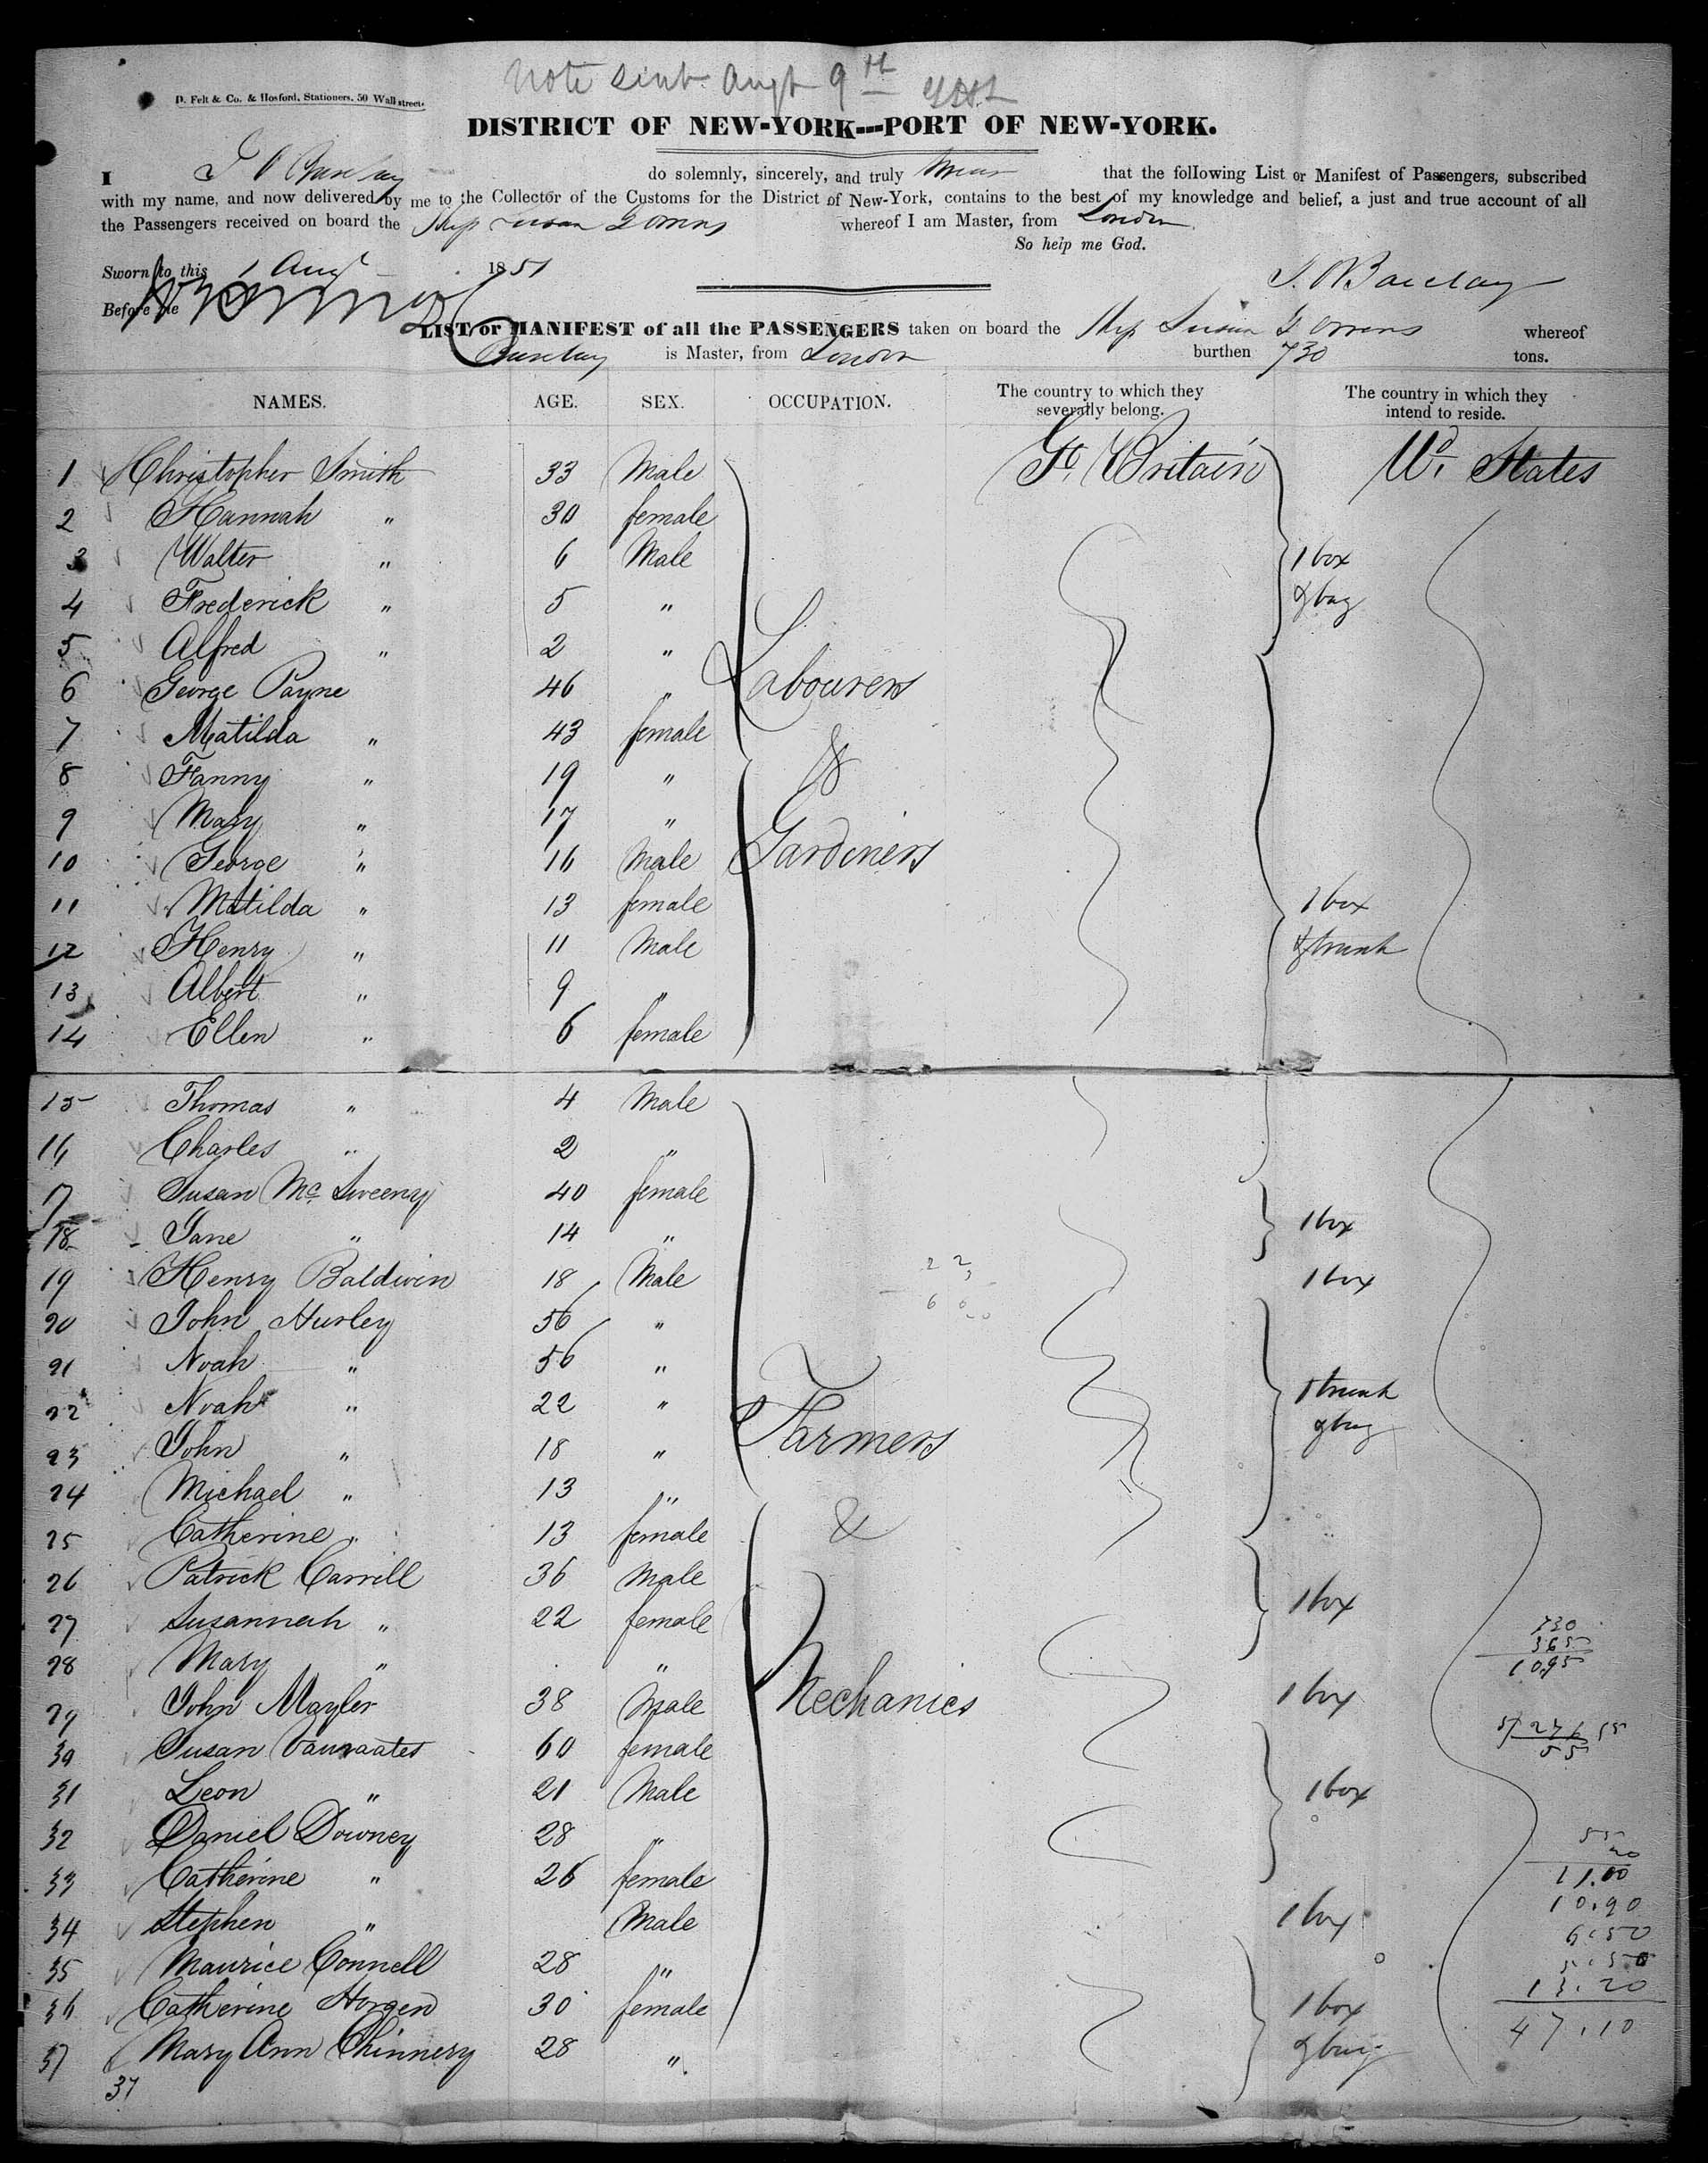 Note sent Augt 9th
D. Felt & Co. & Hosford, Stationers, 50 Wall street.
DISTRICT OF NEW-YORK---PORT OF NEW-YORK.
I T O Barclay do solemnly, sincerely, and truly swear that the following List or Manifest of Passengers, subscribed
with my name, and now delivered by me to the Collector of the Customs for the District of New-York, contains to the best of my knowledge and belief, a just and true account of all
the Passengers received on board the Ship Susan G Owens whereof I am Master, from London
So help me God.
Sworn to this 1 Augt 1851
T. O Barclay
Before me
LIST or MANIFEST of all the PASSENGERS taken on board the Ship Susan G Owens whereof
Barclay is Master, from London burthen 730 tons.
NAMES. AGE. SEX. OCCUPATION. The country to which they severally belong. The country in which they intend to reside.
1 Christopher Smith 33 Male Gt. Britain Ud. States
2 Hannah " 30 female
3 Walter " 6 Male 1 box
4 Frederick " 5 " & bag
5 Alfred " 2 "
6 George Payne 46 " Labourers
7 Matilda " 43 female
8 Fanny " 19 " &
9 Mary " 17 "
10 George " 16 Male Gardiners
11 Matilda " 13 female 1 box
12 Henry " 11 Male & trunk
13 Albert " 9 "
14 Ellen " 6 female
15 Thomas " 4 Male
16 Charles " 2 "
17 Susan Mc Sweeny 40 female
18 Jane " 14 " 1 box
19 Henry Baldwin 18 Male 1 box
20 John Hurley 56 "
21 Noah " 56 "
22 Noah " 22 " 1 trunk
23 John " 18 " Farmers & bag
24 Michael " 13 "
25 Catherine " 13 female &
26 Patrick Carrill 36 Male
27 Susannah " 22 female 1 box
28 Mary " "
29 John Mayler 38 Male Mechanics 1 box
30 Susan 60 female
31 Leon " 21 Male 1 box
32 Daniel Downey 28 "
33 Catherine " 26 female
34 Stephen " Male 1 box
35 Maurice Connell 28 "
36 Catherine Horgen 30 female 1 box
37 Mary Ann Chinnery 28 " & bag
37
730
365
1095
55
20
11.00
10.90
6.50
5.50
13.20
47.10